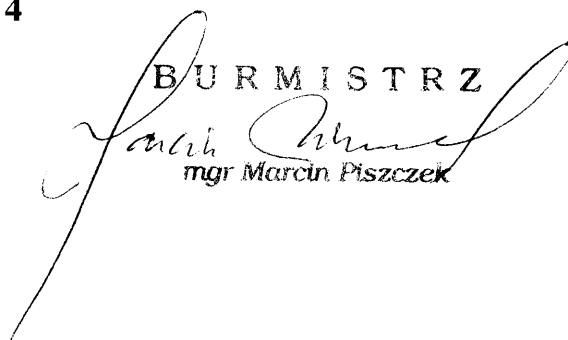 4
BURMISTRZ
mgr Marcin Piszczek